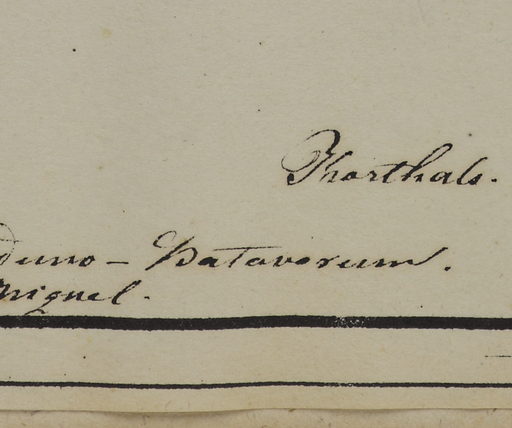 Korthals.
Duno - Batavorum.
Miquel.